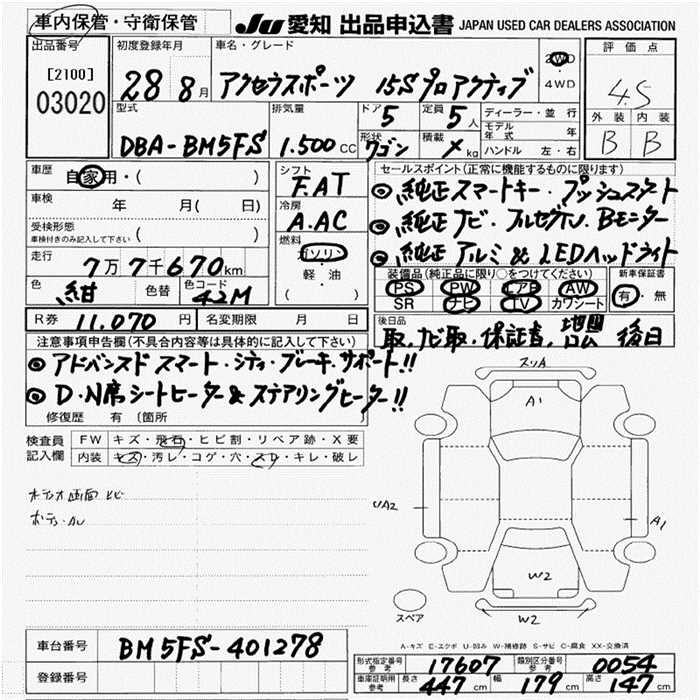 車内保管・守衛保管
JU 愛知 出品申込書 JAPAN USED CAR DEALERS ASSOCIATION
出品番号
[2100]
03020
初度登録年月
28 8月
車名・グレード
アクセラスポーツ 15Sプロアクティブ
2WD
・
4WD
評価点
4.5
外装 内装
B B
型式
DBA-BM5FS
排気量
1.500 CC
ドア 5
定員 5 人
形状 ワゴン
積載 kg
ディーラー・並行
モデル年式 年
ハンドル 左・右
車歴
自家用・( )
車検
年 月( 日)
受検形態
車検付きのみ記入して下さい ( )
走行
7万7千670km
色 紺
色替
色コード 42M
シフト
F.AT
冷房
A.AC
燃料
ガソリン
・
軽・油
( )
セールスポイント(正常に機能するものに限ります)
◎純正スマートキー・プッシュスタート
◎純正ナビ・フルセグTV・Bモニター
◎純正アルミ&LEDヘッドライト
装備品(純正品に限り○をつけてください)
PS PW エアB AW
SR ナビ TV カワシート
新車保証書
有・無
R券 11.070 円
名変期限 月 日
後日品
取.ナビ取.保証書. 後日
注意事項申告欄(不具合内容等は具体的に記入して下さい)
◎アドバンスドスマート・シティ・ブレーキ・サポート!!
◎D・N席シートヒーター&ステアリングヒーター!!
修復歴 有 〔箇所
検査員
記入欄
FW キズ・飛石・ヒビ割・リペア跡・X要
内装 キズ・汚レ・コゲ・穴・スレ・キレ・破レ
スリA
A1
A1
W2
W2
スペア
A-キズ E-エクボ U-凹み W-補修跡 S-サビ C-腐食 XX-交換済
車台番号 BM5FS-401278
登録番号
形式指定番号 参考 17607
類別区分番号 参考 0054
車庫証明用 参考 長さ 447 cm 幅 179 cm 高さ 147 cm